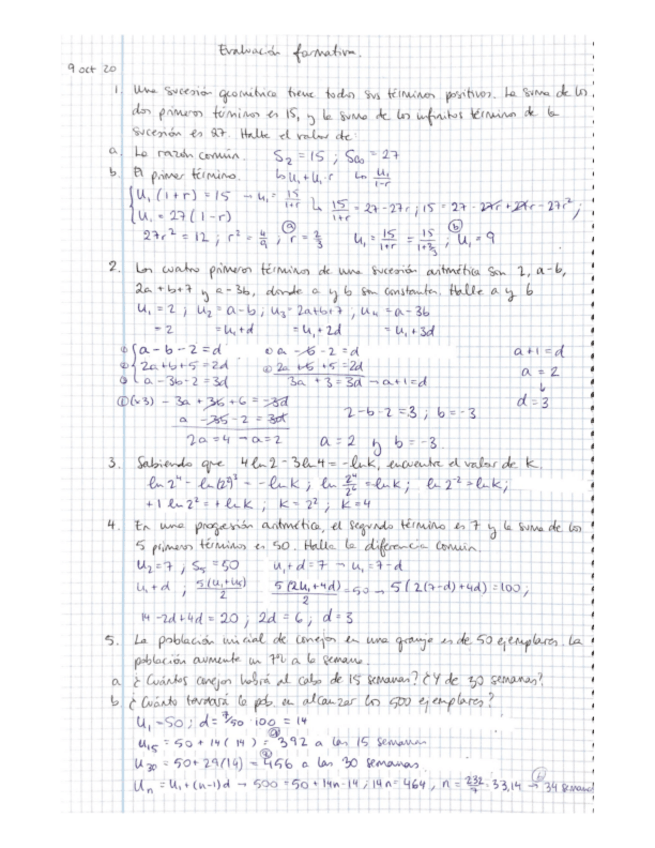 Evaluación formativa.
9 oct 20
1. Una sucesión geométrica tiene todos sus términos positivos. La suma de los
dos primeros términos es 15, y la suma de los infinitos términos de la
sucesión es 27. Halle el valor de:
a. La razón común. S₂ = 15 ; S∞ = 27
b. El primer término. ↳ u₁ + u₁·r ↳ u₁/1-r
{ u₁ (1+r) = 15 → u₁ = 15/1+r ↳ 15/1+r = 27 - 27r ; 15 = 27 - 27r + 27r - 27r² ;
{ u₁ = 27 (1-r)
27r² = 12 ; r² = 4/9 ; (a) r = 2/3 u₁ = 15/1+r = 15/1+2/3 ; (b) u₁ = 9
2. Los cuatro primeros términos de una sucesión aritmética son 2, a-b,
2a+b+7 y a-3b, donde a y b son constantes. Halle a y b
u₁ = 2 ; u₂ = a-b ; u₃ = 2a+b+7 ; u₄ = a-3b
= 2 = u₁+d = u₁+2d = u₁+3d
{ a-b-2 = d a-b-2 = d a+1 = d
{ 2a+b+5 = 2d 2a+b+5 = 2d a = 2
a-3b-2 = 3d 3a+3 = 3d → a+1 = d ↓
①(x3) - 3a+3b+6 = -3d d = 3
a - 3b - 2 = 3d 2-b-2 = 3 ; b = -3
2a = 4 → a = 2 a = 2 y b = -3
3. Sabiendo que 4 ln 2 - 3 ln 4 = -ln K, encuentra el valor de K.
ln 2⁴ - ln (2²)³ = -ln K ; ln 2⁴/2⁶ = -ln K ; ln 2⁻² = -ln K ;
+1 ln 2² = + ln K ; K = 2² ; K = 4
4. En una progresión aritmética, el segundo término es 7 y la suma de los
5 primeros términos es 50. Halla la diferencia común.
u₂ = 7 ; S₅ = 50 u₁+d = 7 → u₁ = 7-d
u₁+d ; 5(u₁+u₅)/2 5(2u₁+4d)/2 = 50 → 5(2(7-d)+4d) = 100 ;
14-2d+4d = 20 ; 2d = 6 ; d = 3
5. La población inicial de conejos en una granja es de 50 ejemplares. La
población aumenta un 7% a la semana.
a ¿Cuántos conejos habrá al cabo de 15 semanas? ¿Y de 30 semanas?
b ¿Cuánto tardará la pob. en alcanzar los 500 ejemplares?
u₁ = 50 ; d = 7/50 · 100 = 14
u₁₅ = 50 + 14(14) = 392 a las 15 semanas
u₃₀ = 50 + 29(14) = 456 a las 30 semanas
uₙ = u₁+(n-1)d → 500 = 50 + 14n - 14 ; 14n = 464 , n = 232/7 · 33,14 → (b) 34 semanas